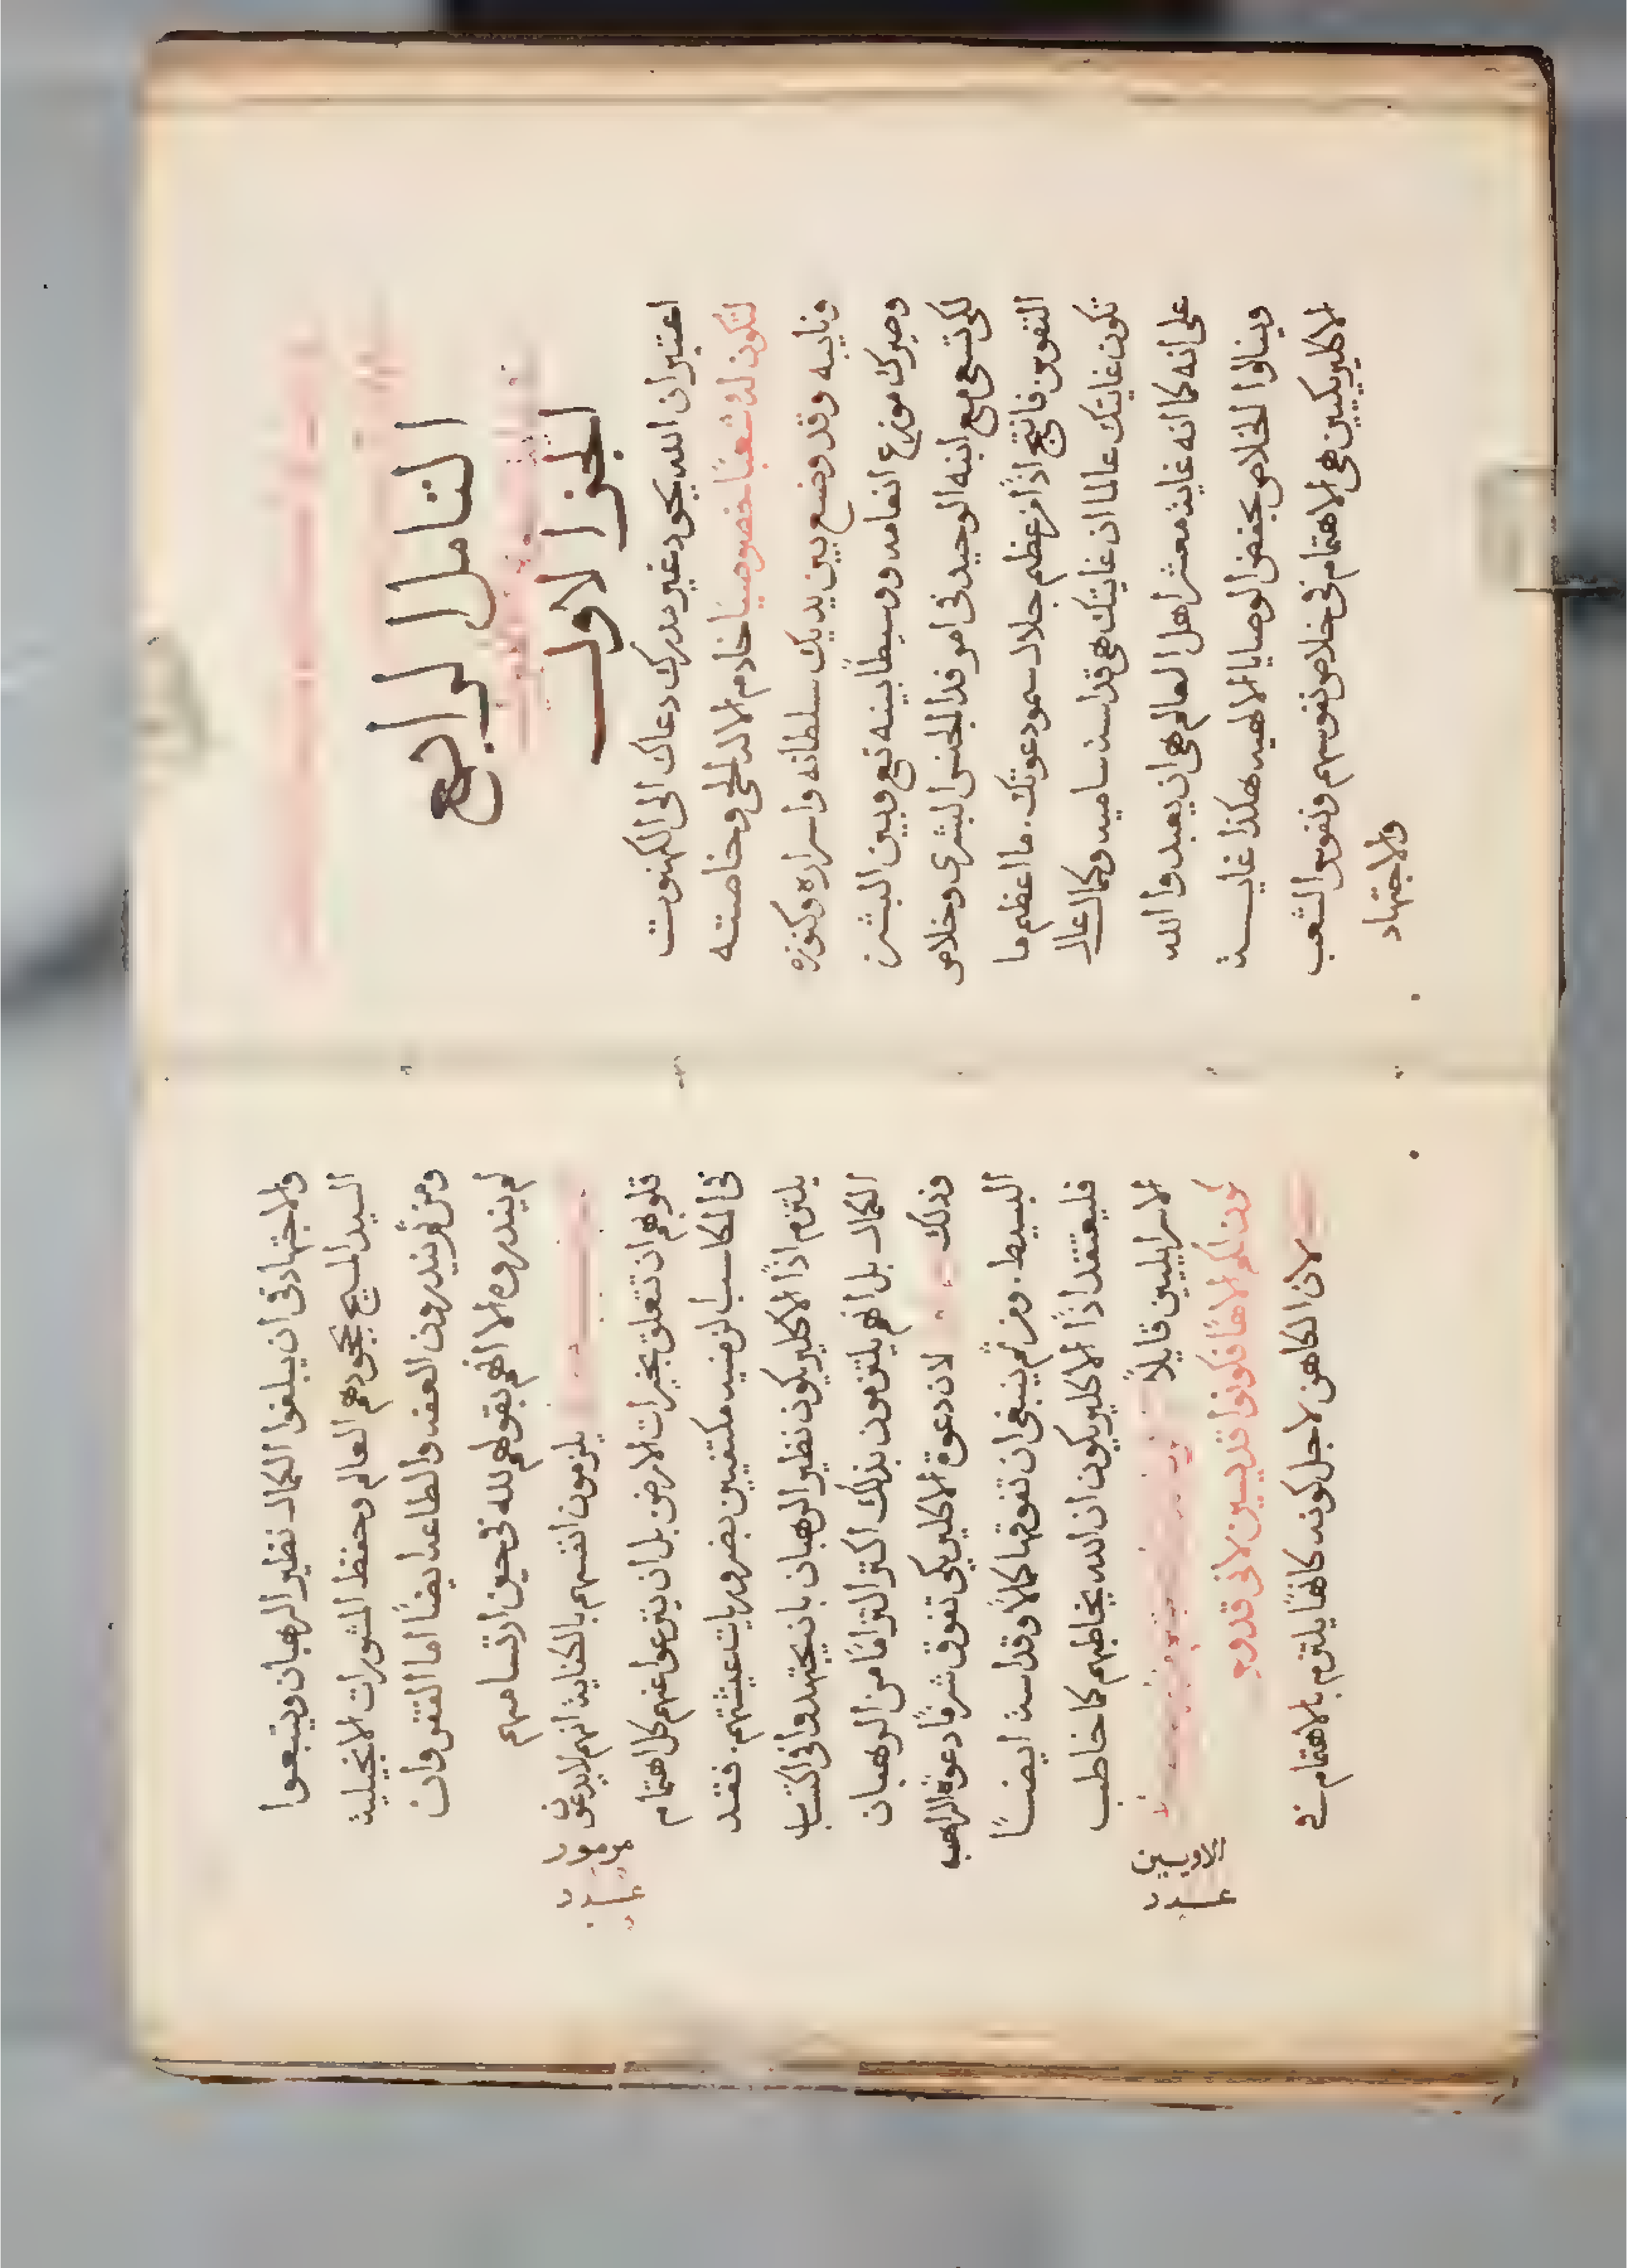 التامل الرابع
الجزا لاول
اعتبر ان الله بجود غير مدرك دعاك الى الكهنوت
لتكون له شعبًا خصوصيًا خادم الاله الحي وخاصته
ونايبه وقد وضع بين يديك سلطانه واسراره وكنوزه
وصيرك موزع انعامه ووسيطًا بينه تع وبين البشر
لكي تسعى مع ابنه الوحيد في امر فدا الجنس البشري وخلاص
النفوس فانتج اذًا من عظم جلال سمو دعوتك. ما اعظم ما
تكون غايتك عالما ان غايتك هي قداسة ساميه وكمال عال
على انه كما انه غاية معشر اهل العالم هي ان يعبدوا الله
وينالوا الخلاص بحفض الوصايا الالهيه هكذا غايـــة
الاكليريكيين هي الاهتمام في خلاص نفوسهم ونفوس الشعب
والاجتهاد
والاجتهاد في ان يبلغوا الكمال نظير الرهبان ويتبعوا
السيد المسيح بجحودهم العالم وحفظ المشورات الانجيلية
ومن ثم ينذرون العفه والطاعه ايضًا اما الفقر وان
لم ينذروه الا انهم بقولهم لله في حين ارتسامهم
يلزمون انفسهم بالكفاية انهم لا يدعون
قلوبهم ان تتعلق بخيرات الارض بل ان ينزعوا عنهم كل اهتمام
في المكاسب الزمنيه مكتفيين بضروريات عيشتهم. فقد
يلتزم اذًا الاكليريكون نظير الرهبان بان يجتهدوا في اكتساب
الكمال بل انهم يلتزمون بذلك اكثر التزامًا من الرهبان
وذلك لان دعوة الاكليريكي تفوق شرفًا دعوة الراهب
البسيط. ومن ثم ينبغي ان تفوقها كمالًا وقداسة ايضــًا
فليعتقد اذًا الاكليريكون ان الله يخاطبهم كما خاطب
الاسراييليين قايلًا
كون لكم الاهًا فكونوا قديسين لاني قدوس
لان الكاهن لاجل كونه كاهنًا يلتزم بالاهتمام في